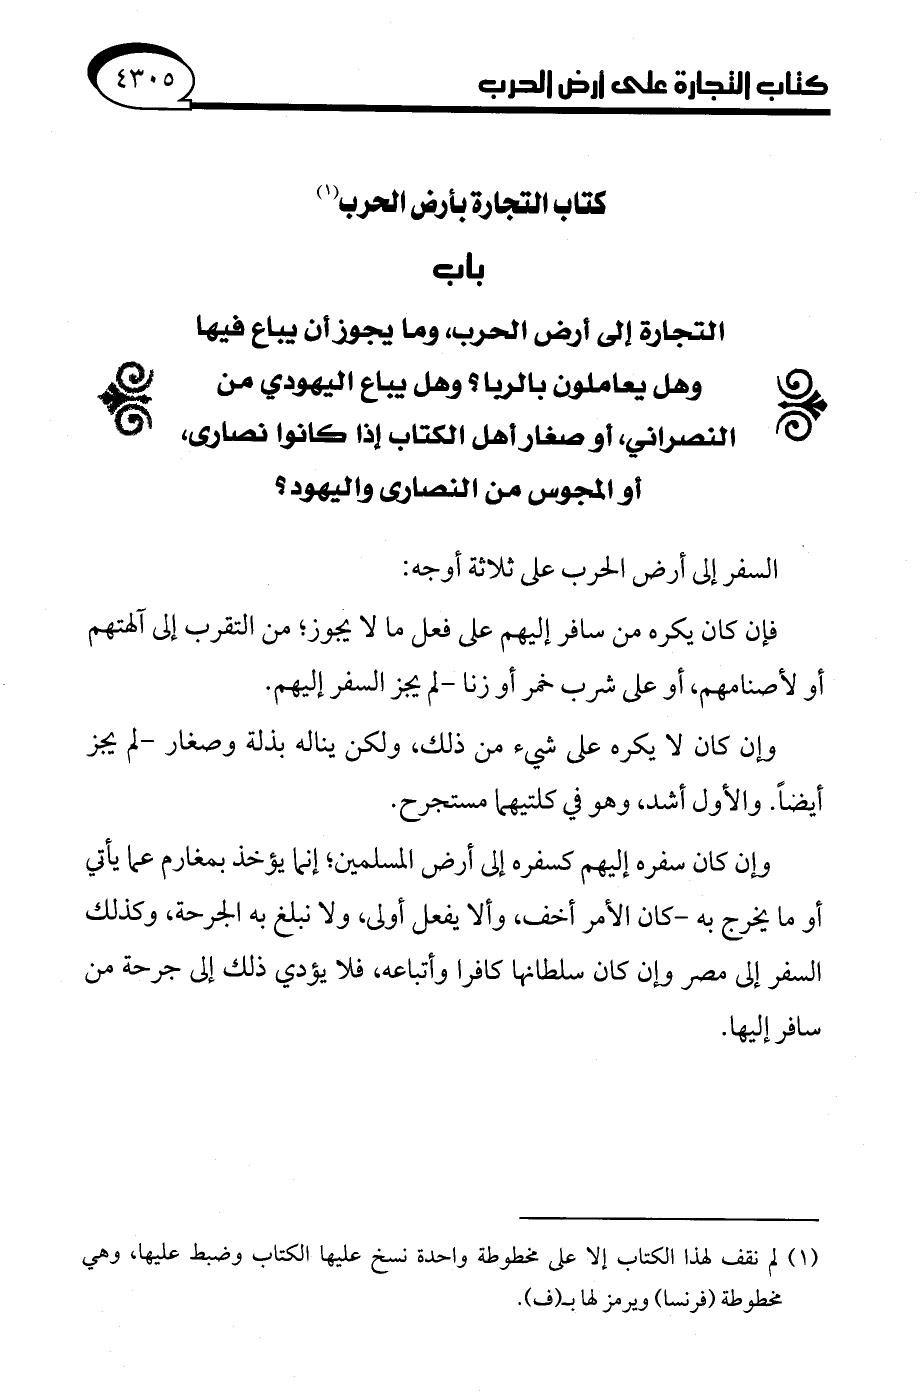 كتاب التجارة على أرض الحرب
٤٣٠٥
كتاب التجارة بأرض الحرب(١)
باب
التجارة إلى أرض الحرب، وما يجوز أن يباع فيها
وهل يعاملون بالربا؟ وهل يباع اليهودي من
النصراني، أو صغار أهل الكتاب إذا كانوا نصارى،
أو المجوس من النصارى واليهود؟
السفر إلى أرض الحرب على ثلاثة أوجه:
فإن كان يكره من سافر إليهم على فعل ما لا يجوز؛ من التقرب إلى آلهتهم
أو لأصنامهم، أو على شرب خمر أو زنا -لم يجز السفر إليهم.
وإن كان لا يكره على شيء من ذلك، ولكن يناله بذلة وصغار -لم يجز
أيضاً. والأول أشد، وهو في كلتيهما مستجرح.
وإن كان سفره إليهم كسفره إلى أرض المسلمين؛ إنما يؤخذ بمغارم عما يأتي
أو ما يخرج به -كان الأمر أخف، وألا يفعل أولى، ولا نبلغ به الجرحة، وكذلك
السفر إلى مصر وإن كان سلطانها كافرا وأتباعه، فلا يؤدي ذلك إلى جرحة من
سافر إليها.
(١) لم نقف لهذا الكتاب إلا على مخطوطة واحدة نسخ عليها الكتاب وضبط عليها، وهي
مخطوطة (فرنسا) ويرمز لها بـ(ف).